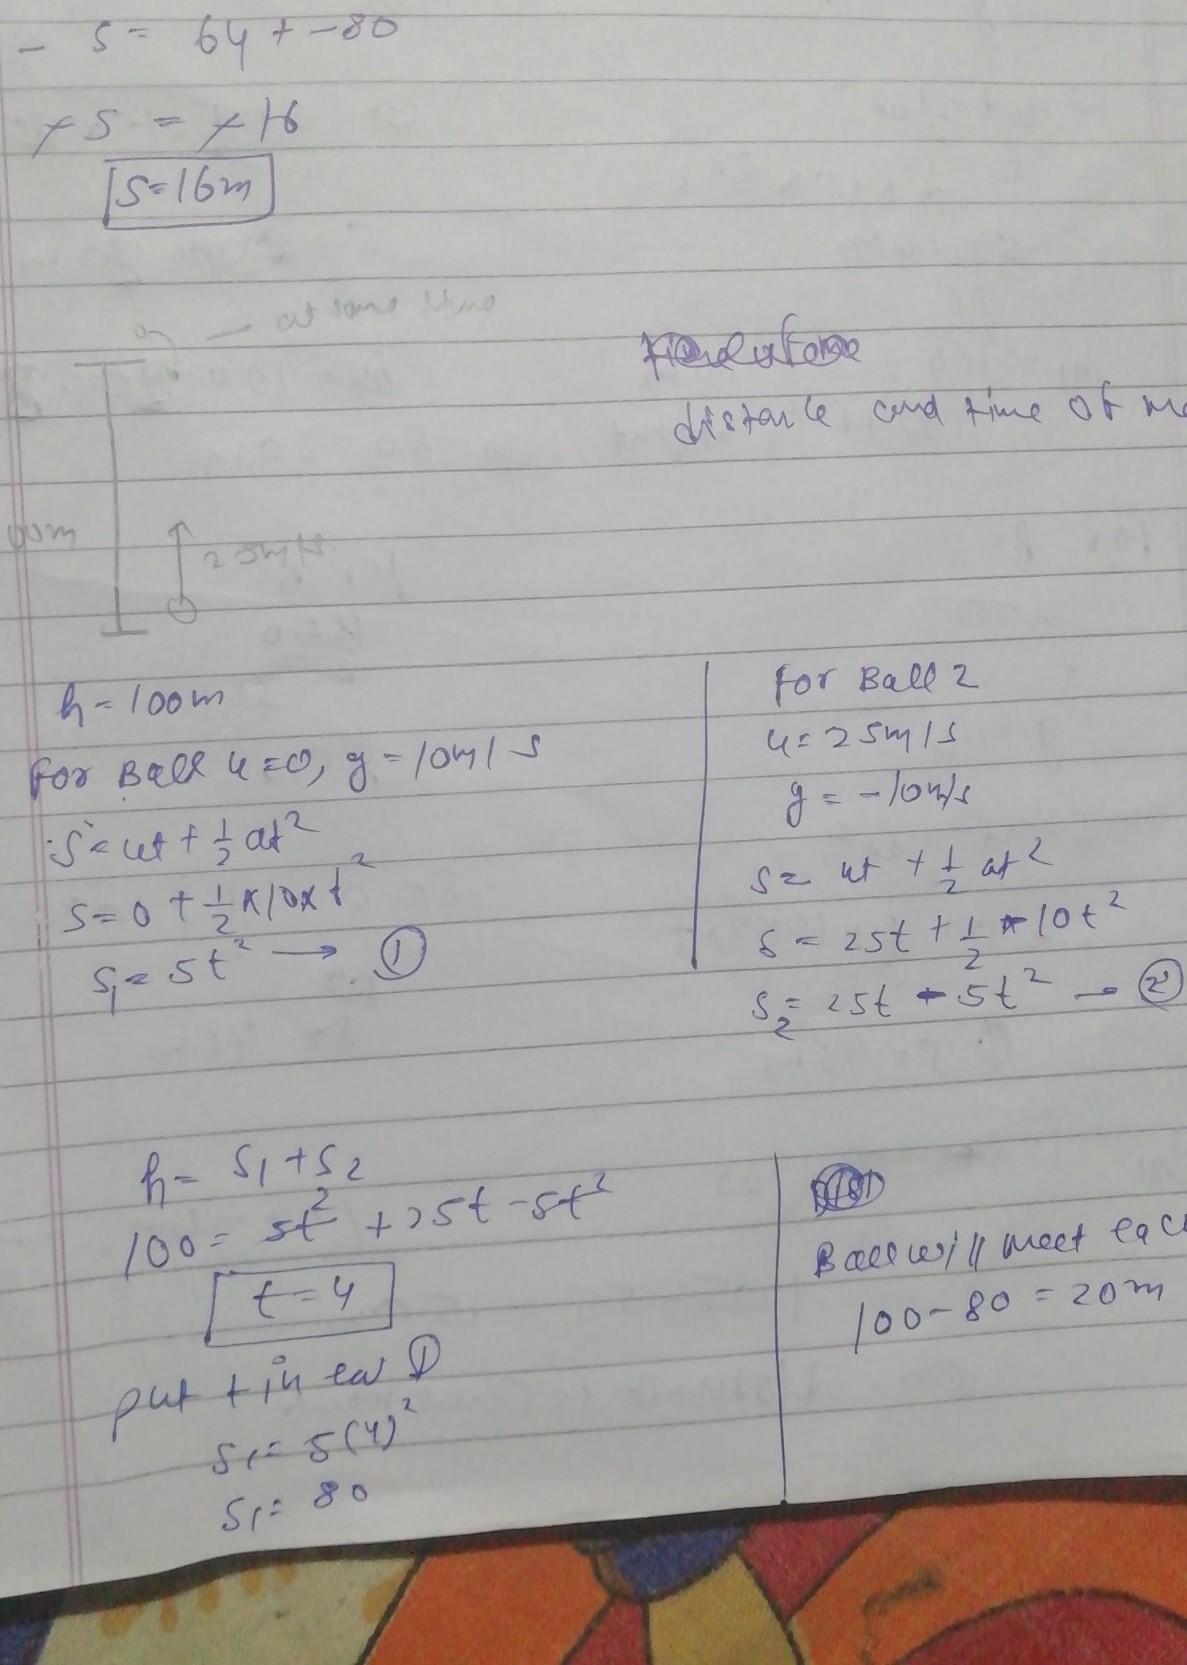 - S = 64 + -80
- S = - 16
S = 16m
at same time
distance and time of me
00m
25m/s
h = 100m
For Ball u = 0, g = 10m/s
S = ut + 1/2 at²
S = 0 + 1/2 × 10 × t²
S₁ = 5t² → ①
For Ball 2
u = 25m/s
g = -10m/s
S = ut + 1/2 at²
S = 25t + 1/2 × -10t²
S₂ = 25t - 5t² → ②
h = S₁ + S₂
100 = 5t² + 25t - 5t²
t = 4
put t in eq ①
S₁ = 5(4)²
S₁ = 80
Ball will meet eac
100 - 80 = 20m